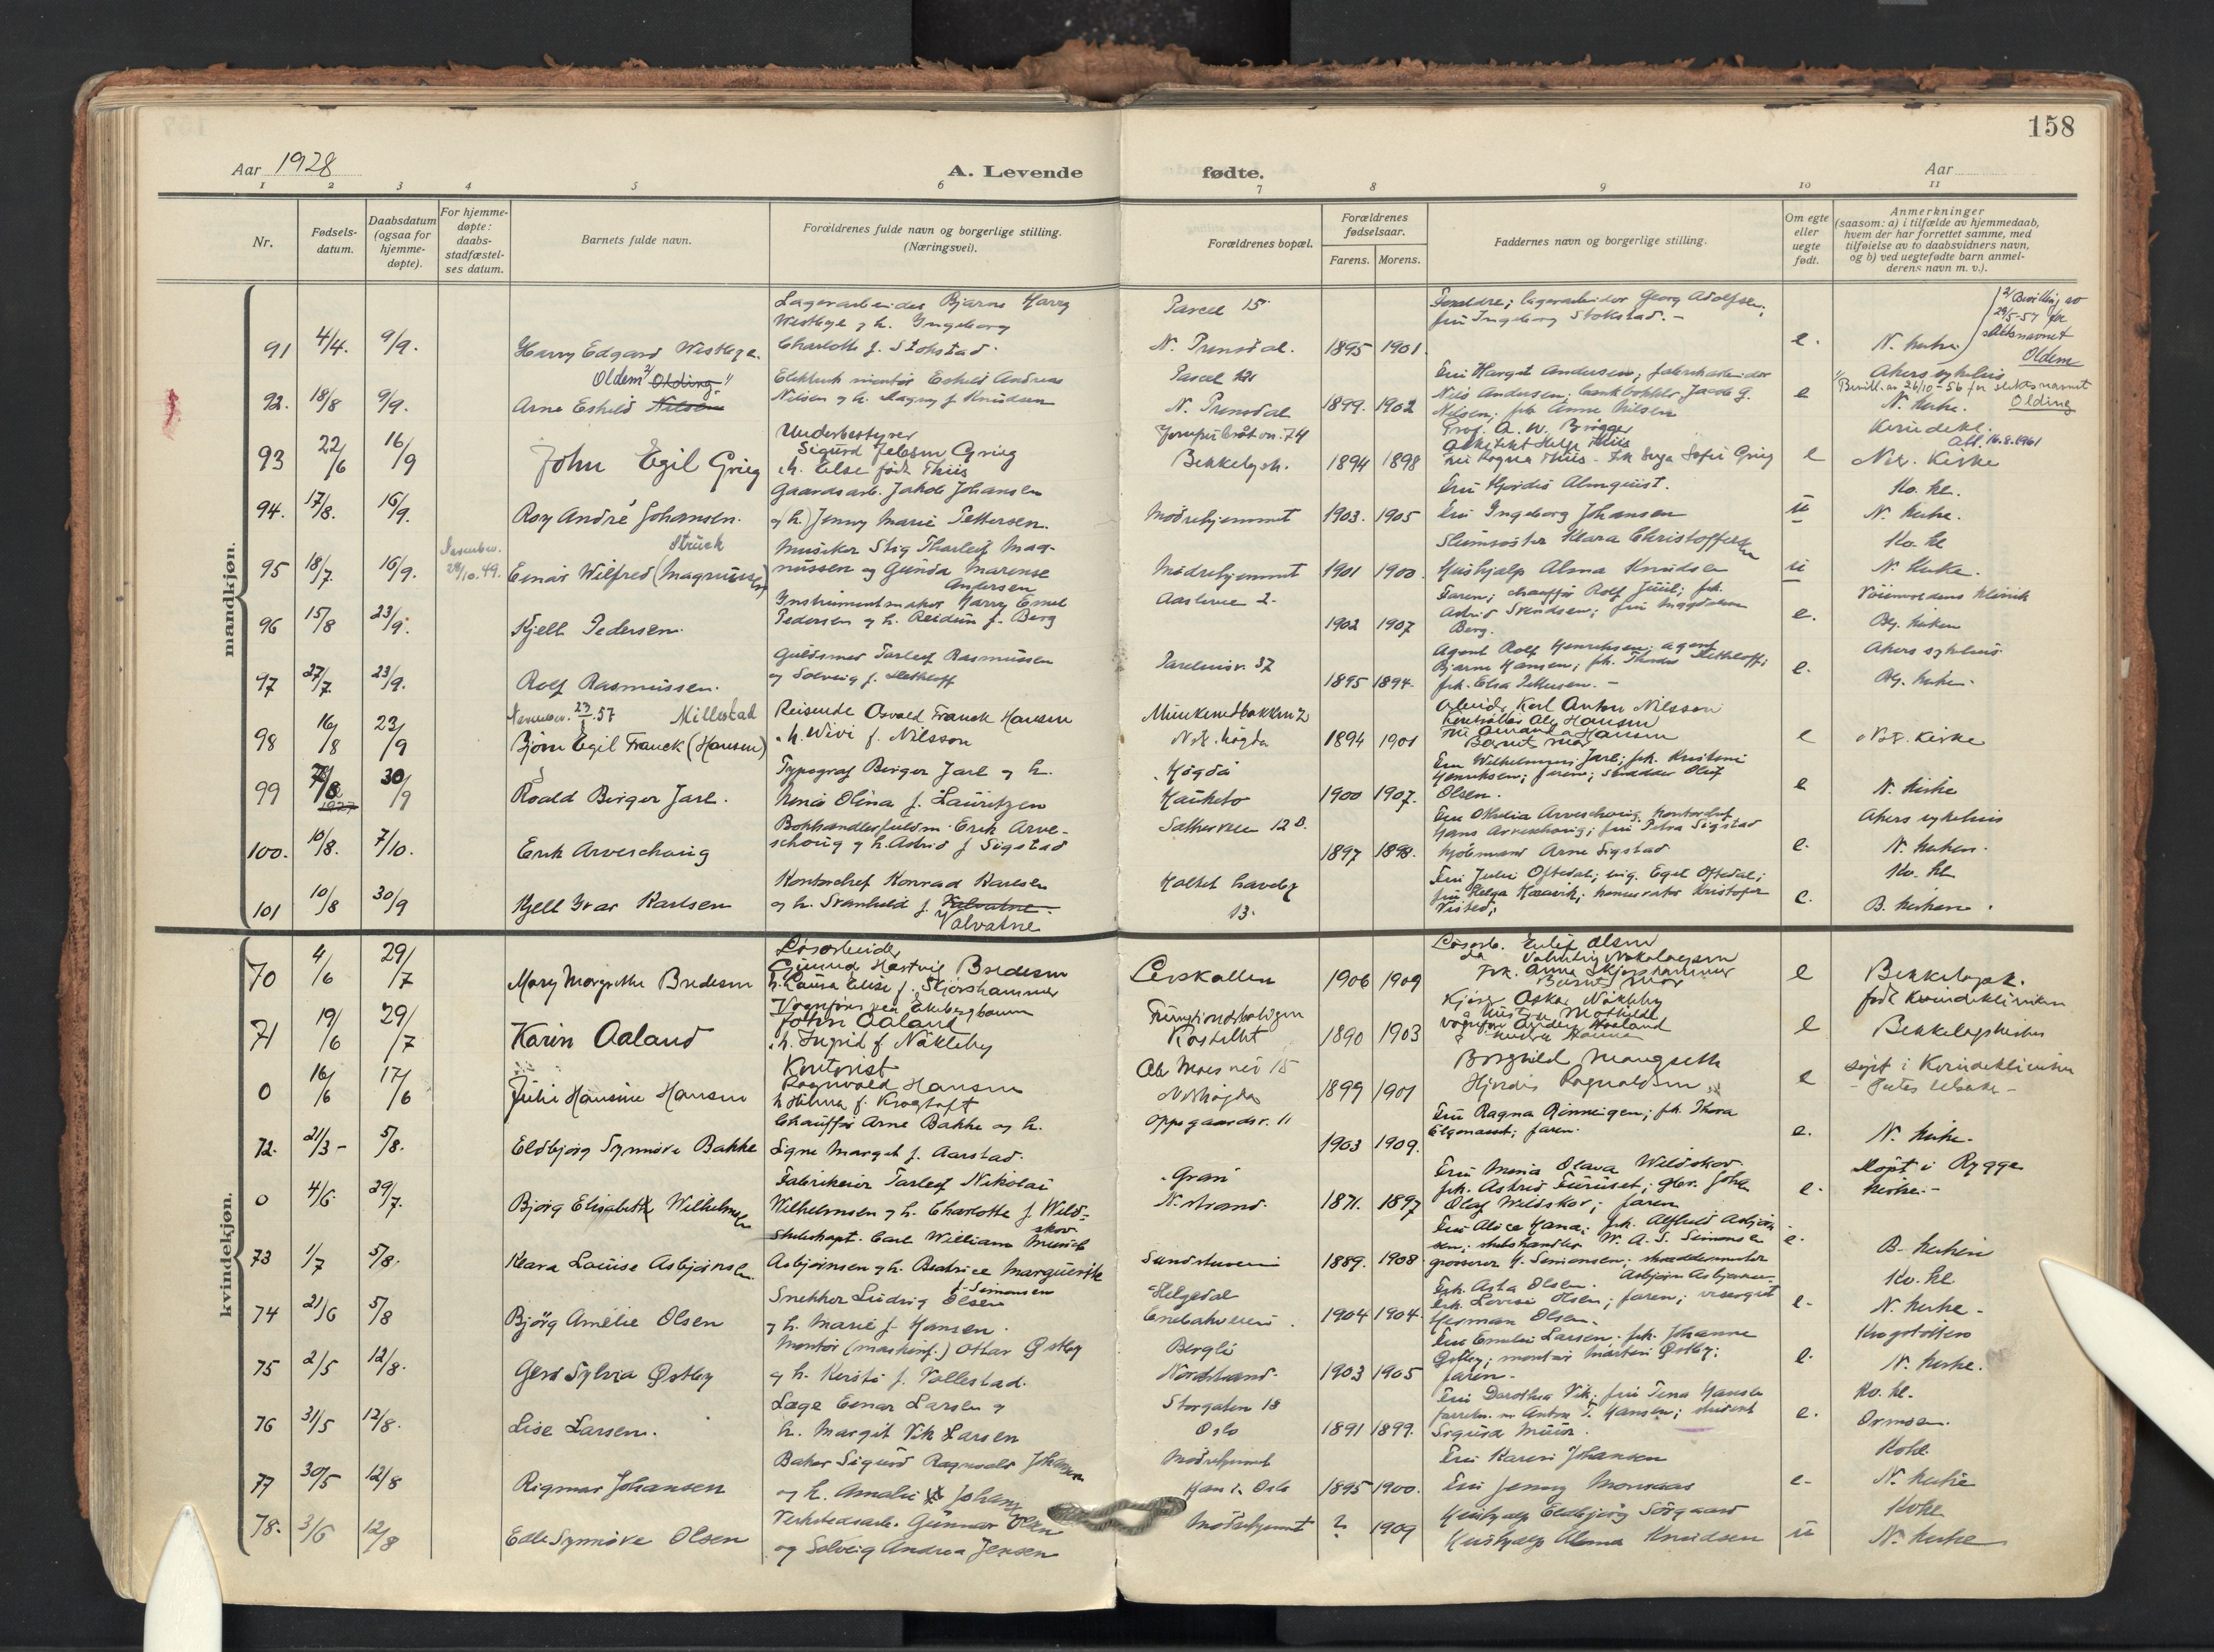 158
Aar 1928
A. Levende fødte.
Aar
1 2 3 4 5 6 7 8 9 10 11
Nr.
Fødselsdatum.
Daabsdatum (ogsaa for hjemmedøpte).
For hjemmedøpte: daabsstadfæstelses datum.
Barnets fulde navn.
Forældrenes fulde navn og borgerlige stilling. (Næringsvei).
Forældrenes bopæl.
Forældrenes fødselsaar.
Farens. Morens.
Faddernes navn og borgerlige stilling.
Om egte eller uegte født.
Anmerkninger (saasom: a) i tilfælde av hjemmedaab, hvem der har forrettet samme, med tilføielse av to daabsvidners navn, og b) ved uegtefødte barn anmelderens navn m. v.).
mandkjøn.
91 4/4. 9/9. Harry Edgard Westbye. Lagerarbeider Bjarne Harry Westbye og h. Ingeborg Charlotte f. Stokstad. Parcel 15 N. Prinsdal. 1895 1901. Foreldre; lagerarbeider Georg Adolfsen; fru Ingeborg Stokstad. - e. N. kirke.
2/ Bevilling av 29/5-57 for slektsnavnet Oldem
92. 18/8 9/9. Arne Eskild Nilsen Olding 1/ Oldem 2/ Elektrisk montør Eskild Andreas Nilsen og h. Magny f. Knudsen N. Prinsdal 1899. 1902 Fru Margit Andersen; fabrikarbeider Nils Andersen; Jacob G. Nilsen; frk Anne Nilsen e Akers sykehus N. kirke.
1/ Bevill. av 26/10-56 for slektsnavnet Olding
93 22/6 16/9 John Egil Grieg Underbestyrer Sigurd Grieg h. Else født Thiis Jomfrubråtvn. 74 Bekkelagsh. 1894 1898 Prof. A. W. Brøgger Arkitekt Helge Thiis Fru Ragna Thiis - Frk Sofie Grieg e Kvindekl. Abf. 16.8.1961 Nor. Kirke
94. 17/8. 16/9. Roy André Johansen. Gaardsarb. Jakob Johansen og (h.) Jenny Marie Pettersen. Mødrehjemmet 1903. 1905 Fru Hjørdis Almquist. Fru Ingeborg Johansen u Kv. kl. N. kirke.
95 18/7. 16/9. 28/10.49. Einar Wilfred (Magnussen) Struck Musiker Stig Tharleif Magnussen og Gunda Marense Andersen Mødrehjemmet 1901 1900. Søster Klara Christoffersen Hushjælp Alma Knudsen u Kv. kl N. kirke.
96 15/8 23/9. Kjell Pedersen. Instrumentmaker Harry Emil Pedersen og h. Reidun f. Berg Aaslivn 2. 1902 1907 Faren; chauffør Rolf Juul; frk. Astrid Svendsen; fru Magdalene Berg. e. Bg. kirken
97 27/7. 23/9. Rolf Rasmussen. Guldsmed Tarleif Rasmussen og Solveig f. Dethloff Pareliusv. 37 1895 1894. Agent Rolf Henriksen; agent Bjarne Hansen; frk. Thordis Dethloff; frk. Elsa Pettersen. - e. Akers sykehus Bg. kirken.
98 16/8 23/9 23/1.57 Millestad Bjørn Egil Franck (Hansen) Reisende Osvald Franck Hansen h. Wivi f. Nilsson Munkerudbakken 2 Nok. høgda 1894 1901 Karl Anton Nilsson Kontrollør Alf Hansen Fru Amanda Hansen Barnets mor e Nor. Kirke
99 7/8 1927 30/9 Roald Birger Jarl. Typograf Birger Jarl og h. Nonia Olina f. Lauritzen Høgda Hauketo 1900 1907. Fru Wilhelmine Jarl; frk. Kristine Henriksen; faren; skrædder Olaf Olsen. e N. Kirke
100. 10/8. 7/10. Erik Arveschoug Bokhandlerfuldm. Erik Arveschoug og h. Astrid f. Sigstad Sætherveien 12 B. 1897 1898. Fru Othilia Arveschoug, kontorchef Hans Arveschoug; fru Petra Sigstad kjøbmand Arne Sigstad e. Akers sykehus N. kirken.
101 10/8 30/9 Kjell Ivar Karlsen Kontorchef Konrad Karlsen og h. Svanhild f. Valvatne Holtet haveby 13. Fru Julie Oftedal; ing. Egil Oftedal; fru Helga Kaarvik; Kristofer Visted; e. Kv. kl. B. kirken.
kvindekjøn.
70 4/6 29/7 Mary Margrethe Bredesen Løsarbeider Gunnar Hartvig Bredesen h. Laura Elise f. Skjørshammer Lerskallen 1906 1909 Løsarb. Enlif Olsen Valentin Nikolaysen Frk. Anna Skjørshammer Barnets mor e Bekkelagsk.
71 19/6 29/7 Karin Aaland Vognfører ved Ekebergbanen John Aaland h. Ingrid f. Nökleby Funktionærboligen Kastellet 1890 1903 Oskar Nökleby Hustru Mathilde Vognfører Anders Aaland e født Kvindeklinikken Bekkelagskirken
0 16/6 17/6 Juli Hansine Hansen Kontorist Ragnvald Hansen h Hilma f. Krogtoft Ole Moes vei 15 Nordhøgda 1899 1901 Borghild Mangseth Hjørdis Ragnvaldsen e døpt i Kvindeklinikken
72. 21/3 - 5/8. Eldbjørg Synnøve Bakke Chauffør Arne Bakke og h. Signe Margit f. Aarstad. Oppegaardsv. 11 1903 1909. Fru Ragna Rinneigen; frk. Thora Elgenaset; faren. e. N. kirke.
0 4/6. 29/7. Bjørg Elisabeth Wilhelmsen Fabrikeier Tarleif Nikolai Wilhelmsen og h. Charlotte f. Wildskov Gran N.strand. 1871. 1897 Fru Maria Olava Wildskov frk. Astrid Furuset; gbr. Johan Olaf Wildskov; faren e. Døpt i Rygge kirke. -
73 1/7 5/8. Klara Louise Asbjørnsen Skibskapt. Carl William Munch Asbjørnsen og h. Beatrice Marguerite f. Simonsen Sandstuveien 1889. 1908. Fru Alice Hana; frk. Alfhild Asbjørnsen; skibshandler W. A. S. Simonsen grosserer H. Simonsen; skræddermester Asbjørn Asbjørnsen e. B. kirken
74 21/6 5/8 Bjørg Amelie Olsen Snekker Ludvig Olsen og h. Marie f. Hansen. Helgedal Enebakveien. 1904 1904. Frk. Asta Olsen. frk. Lovise Olsen; faren; visergut Herman Olsen. e. Kv. kl. N. kirke -
75 2/5 12/8. Gerd Sylvia Østby Montør (maskinf.) Ottar Østby og h. Kersti f. Vollestad. Berglie Nordstrand. 1903 1905 Fru Emilie Larsen. frk. Johanne Østby; montør Martin Østby; faren - e. N. kirke.
76 31/5 12/8. Lise Larsen. Læge Einar Larsen og h. Margit Vik Larsen Storgaten 18 Oslo 1891 1899. Fru Dorothea Vik; fru Tina Hansen Anton T. Hansen; student Sigurd e. Kv. kl. Ormøen.
77 30/5 12/8 Rigmor Johansen Baker Sigurd Ragnvald Johansen og h. Amalie Mødrehjemmet Han i Oslo 1895 1900. Fru Karen Johansen Fru Jenny Monsaas e. Kvkl. N. kirke
78. 3/6 12/8 Edle Synnøve Olsen Verkstedsarb. Gunnar Olsen og Solveig Andrea Jensen Mødrehjemmet ? 1909 Hushjælp Eldbjørg Sørgaard Hushjælp Alma Knudsen u Kvkl N. kirke